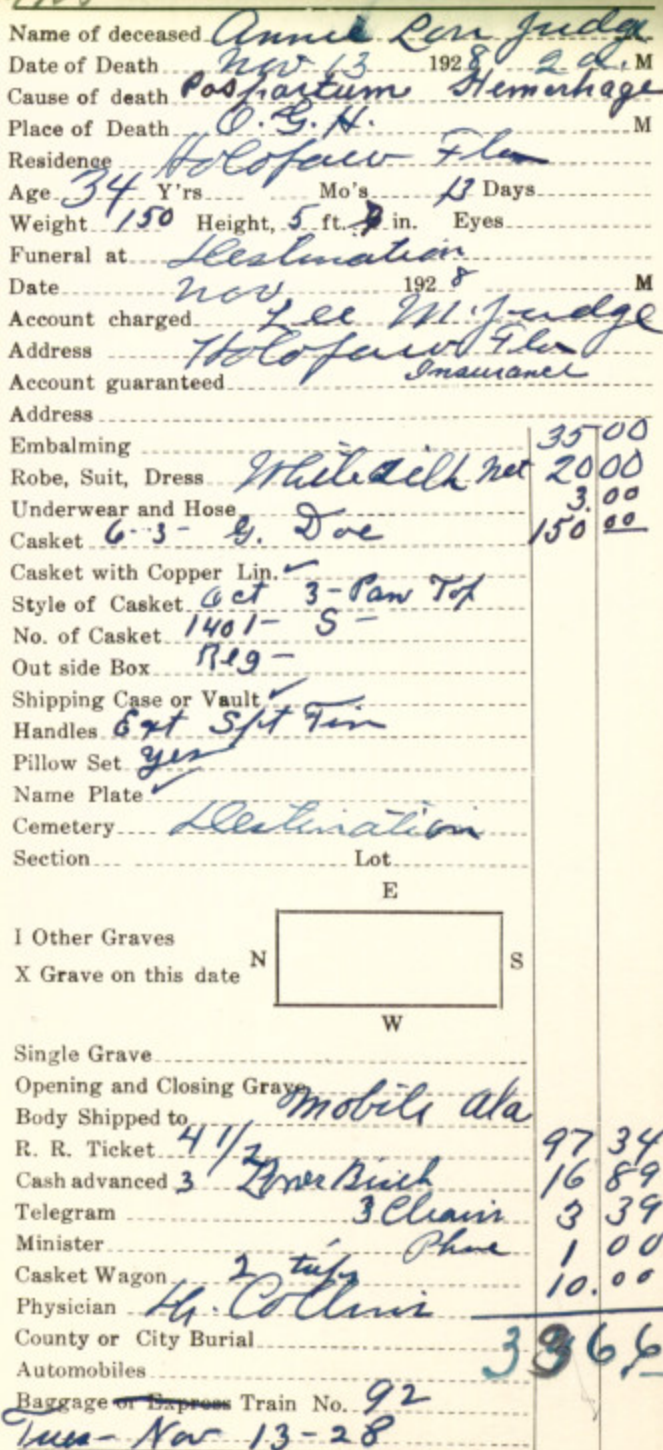 Name of deceased Annie Lou Judge
Date of Death Nov 13 1928 2 a. M
Cause of death Pospartum Hemorhage
Place of Death O. G. H. M
Residence Holopaw Fla
Age 34 Y'rs Mo's 13 Days
Weight 150 Height, 5 ft. in. Eyes
Funeral at Destination
Date Nov 1928 M
Account charged Lee M. Judge
Address Holopaw Fla
Account guaranteed Insurance
Address
Embalming 35 00
Robe, Suit, Dress White Silk Net 20 00
Underwear and Hose 3. 00
Casket 6-3- G. Doe 150 00
Casket with Copper Lin. ✓
Style of Casket Oct 3-Pan Top
No. of Casket 1401- S -
Out side Box Reg -
Shipping Case or Vault ✓
Handles Ext Spt Tin
Pillow Set yes
Name Plate ✓
Cemetery Destination
Section Lot
E
I Other Graves
N S
X Grave on this date
W
Single Grave
Opening and Closing Grave
Body Shipped to Mobile Ala
R. R. Ticket 4 1/2 97 34
Cash advanced 3 16 89
Telegram 3 3 39
Minister Phone 1 00
Casket Wagon 2 trips 10. 00
Physician H. Collins
County or City Burial 3366
Automobiles
Baggage or Express Train No. 92
Tues- Nov 13-28